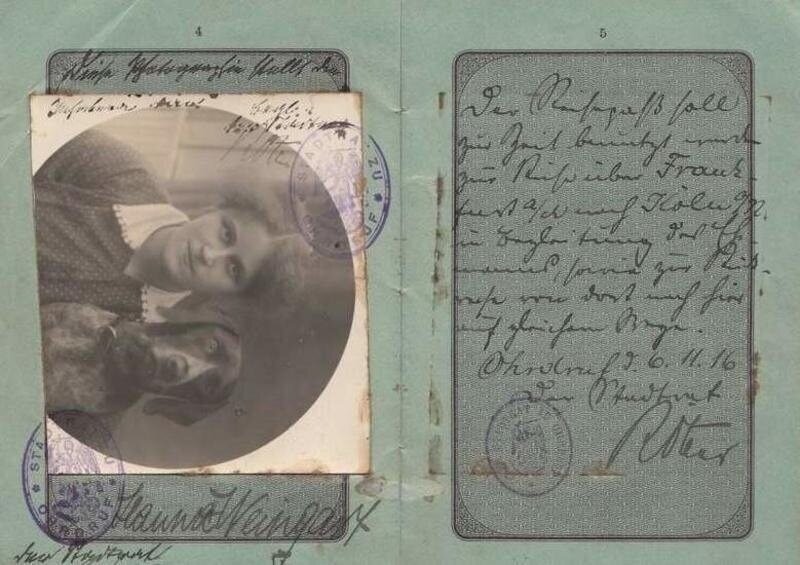 4
Diese Photographie stellt den
Hanna Weingart
der Stadtrat
STADTRAT ZU
OHRDRUF
5
Der Reisepaß soll
zur Zeit benutzt werden
zur Reise über Frank-
furt a/M nach Köln a/R.
in Begleitung des Ehe-
manns, sowie zur Rück-
reise von dort nach hier
auf gleichem Wege.
Ohrdruf d. 6. 11. 16
Der Stadtrat